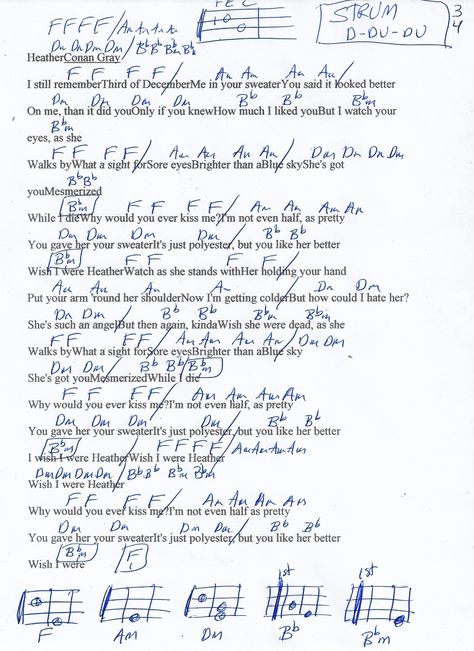 F F F F / Am Am Am Am
STRUM
D-DU-DU
3
4
Dm Dm Dm Dm / Bb Bb Bbm Bb
HeatherConan Gray
F F F F / Am Am Am Am
I still rememberThird of DecemberMe in your sweaterYou said it looked better
Dm Dm Dm Dm / Bb Bb Bbm
On me, than it did youOnly if you knewHow much I liked youBut I watch your
Bbm
eyes, as she
F F F F / Am Am Am Am / Dm Dm Dm Dm
Walks byWhat a sight forSore eyesBrighter than aBlue skyShe's got
Bb Bb
youMesmerized
Bbm F F F F / Am Am Am Am
While I dieWhy would you ever kiss me?I'm not even half, as pretty
Dm Dm Dm Dm / Bb Bb
You gave her your sweaterIt's just polyester, but you like her better
Bbm F F F F /
Wish I were HeatherWatch as she stands withHer holding your hand
Am Am Am Am / Dm Dm
Put your arm 'round her shoulderNow I'm getting colderBut how could I hate her?
Dm Dm / Bb Bb Bbm Bbm
She's such an angelBut then again, kindaWish she were dead, as she
F F F F / Am Am Am Am / Dm Dm
Walks byWhat a sight forSore eyesBrighter than aBlue sky
Dm Dm / Bb Bb Bbm
She's got youMesmerizedWhile I die
F F F F / Am Am Am Am
Why would you ever kiss me?I'm not even half, as pretty
Dm Dm Dm Dm / Bb Bb
You gave her your sweaterIt's just polyester, but you like her better
Bbm F F F F / Am Am Am Am
I wish I were HeatherWish I were Heather
Dm Dm Dm Dm / Bb Bb Bbm Bbm
Wish I were Heather
F F F F / Am Am Am Am
Why would you ever kiss me?I'm not even half as pretty
Dm Dm Dm Dm / Bb Bb
You gave her your sweaterIt's just polyester, but you like her better
Bbm F 1
Wish I were
1st 1st
F Am Dm Bb Bbm